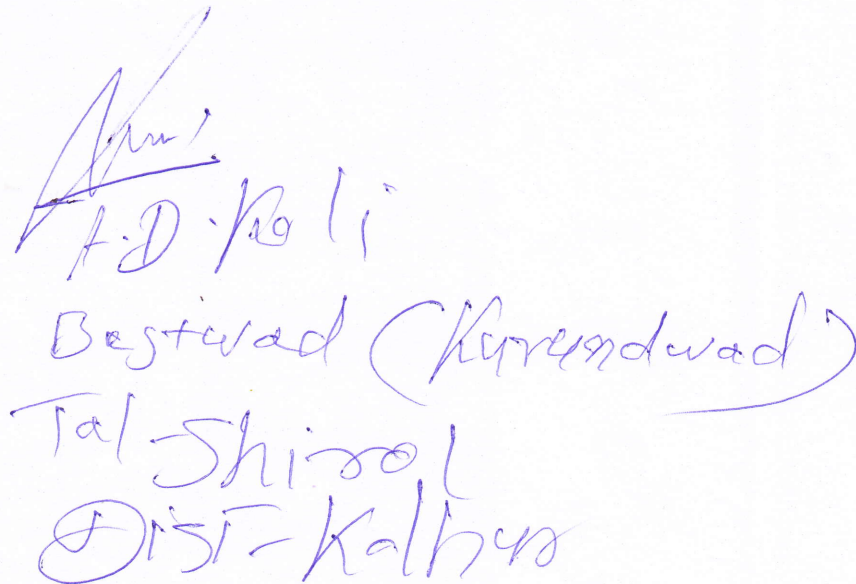 A.D. Koli
Bastwad (Kurundwad)
Tal-Shirol
Dist-Kolhpur